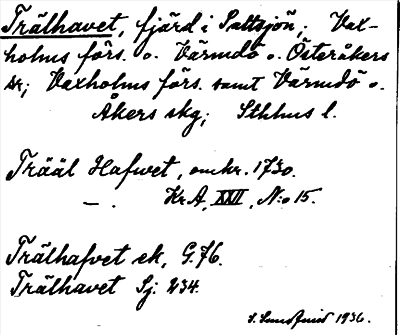 Trälhavet, fjärd i Saltsjön; Vax-
holms förs. o. Värmdö o. Österåkers
sk; Vaxholms förs. samt Värmdö o.
Åkers skg; Sthlms l.
Trääl Hafwet, omkr. 1730.
— . KrA, XXII, N:o 15.
Trälhafvet ek, G.76.
Trälhavet Sj: 234.
1936.